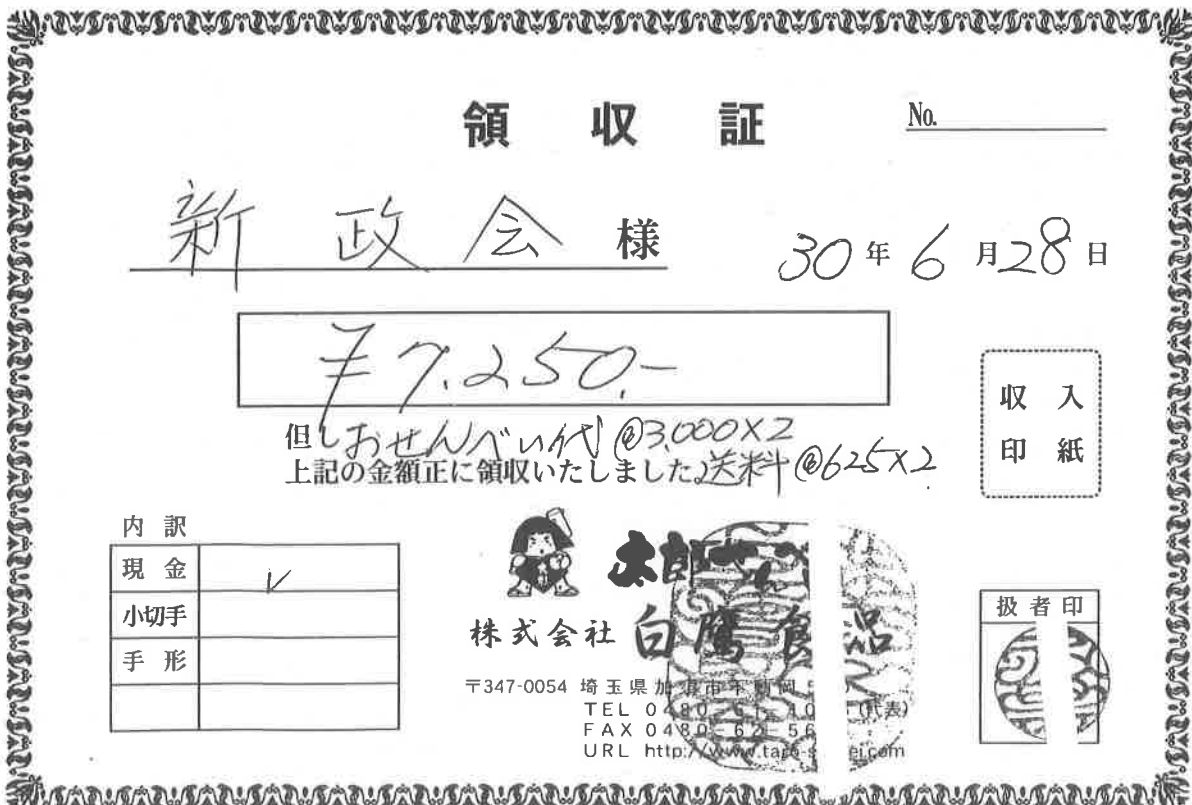 領収証
No.
新政会 様
30年6月28日
¥7,250.-
但しおせんべい代 @3,000×2
上記の金額正に領収いたしました 送料 @625×2
収入
印紙
内訳
現金 ✓
小切手
手形
太郎
株式会社 白鷹食品
〒347-0054 埼玉県加須市不動岡
TEL 0480-61- (代表)
FAX 0480-62-56
URL http://www.taro-s ei.com
扱者印